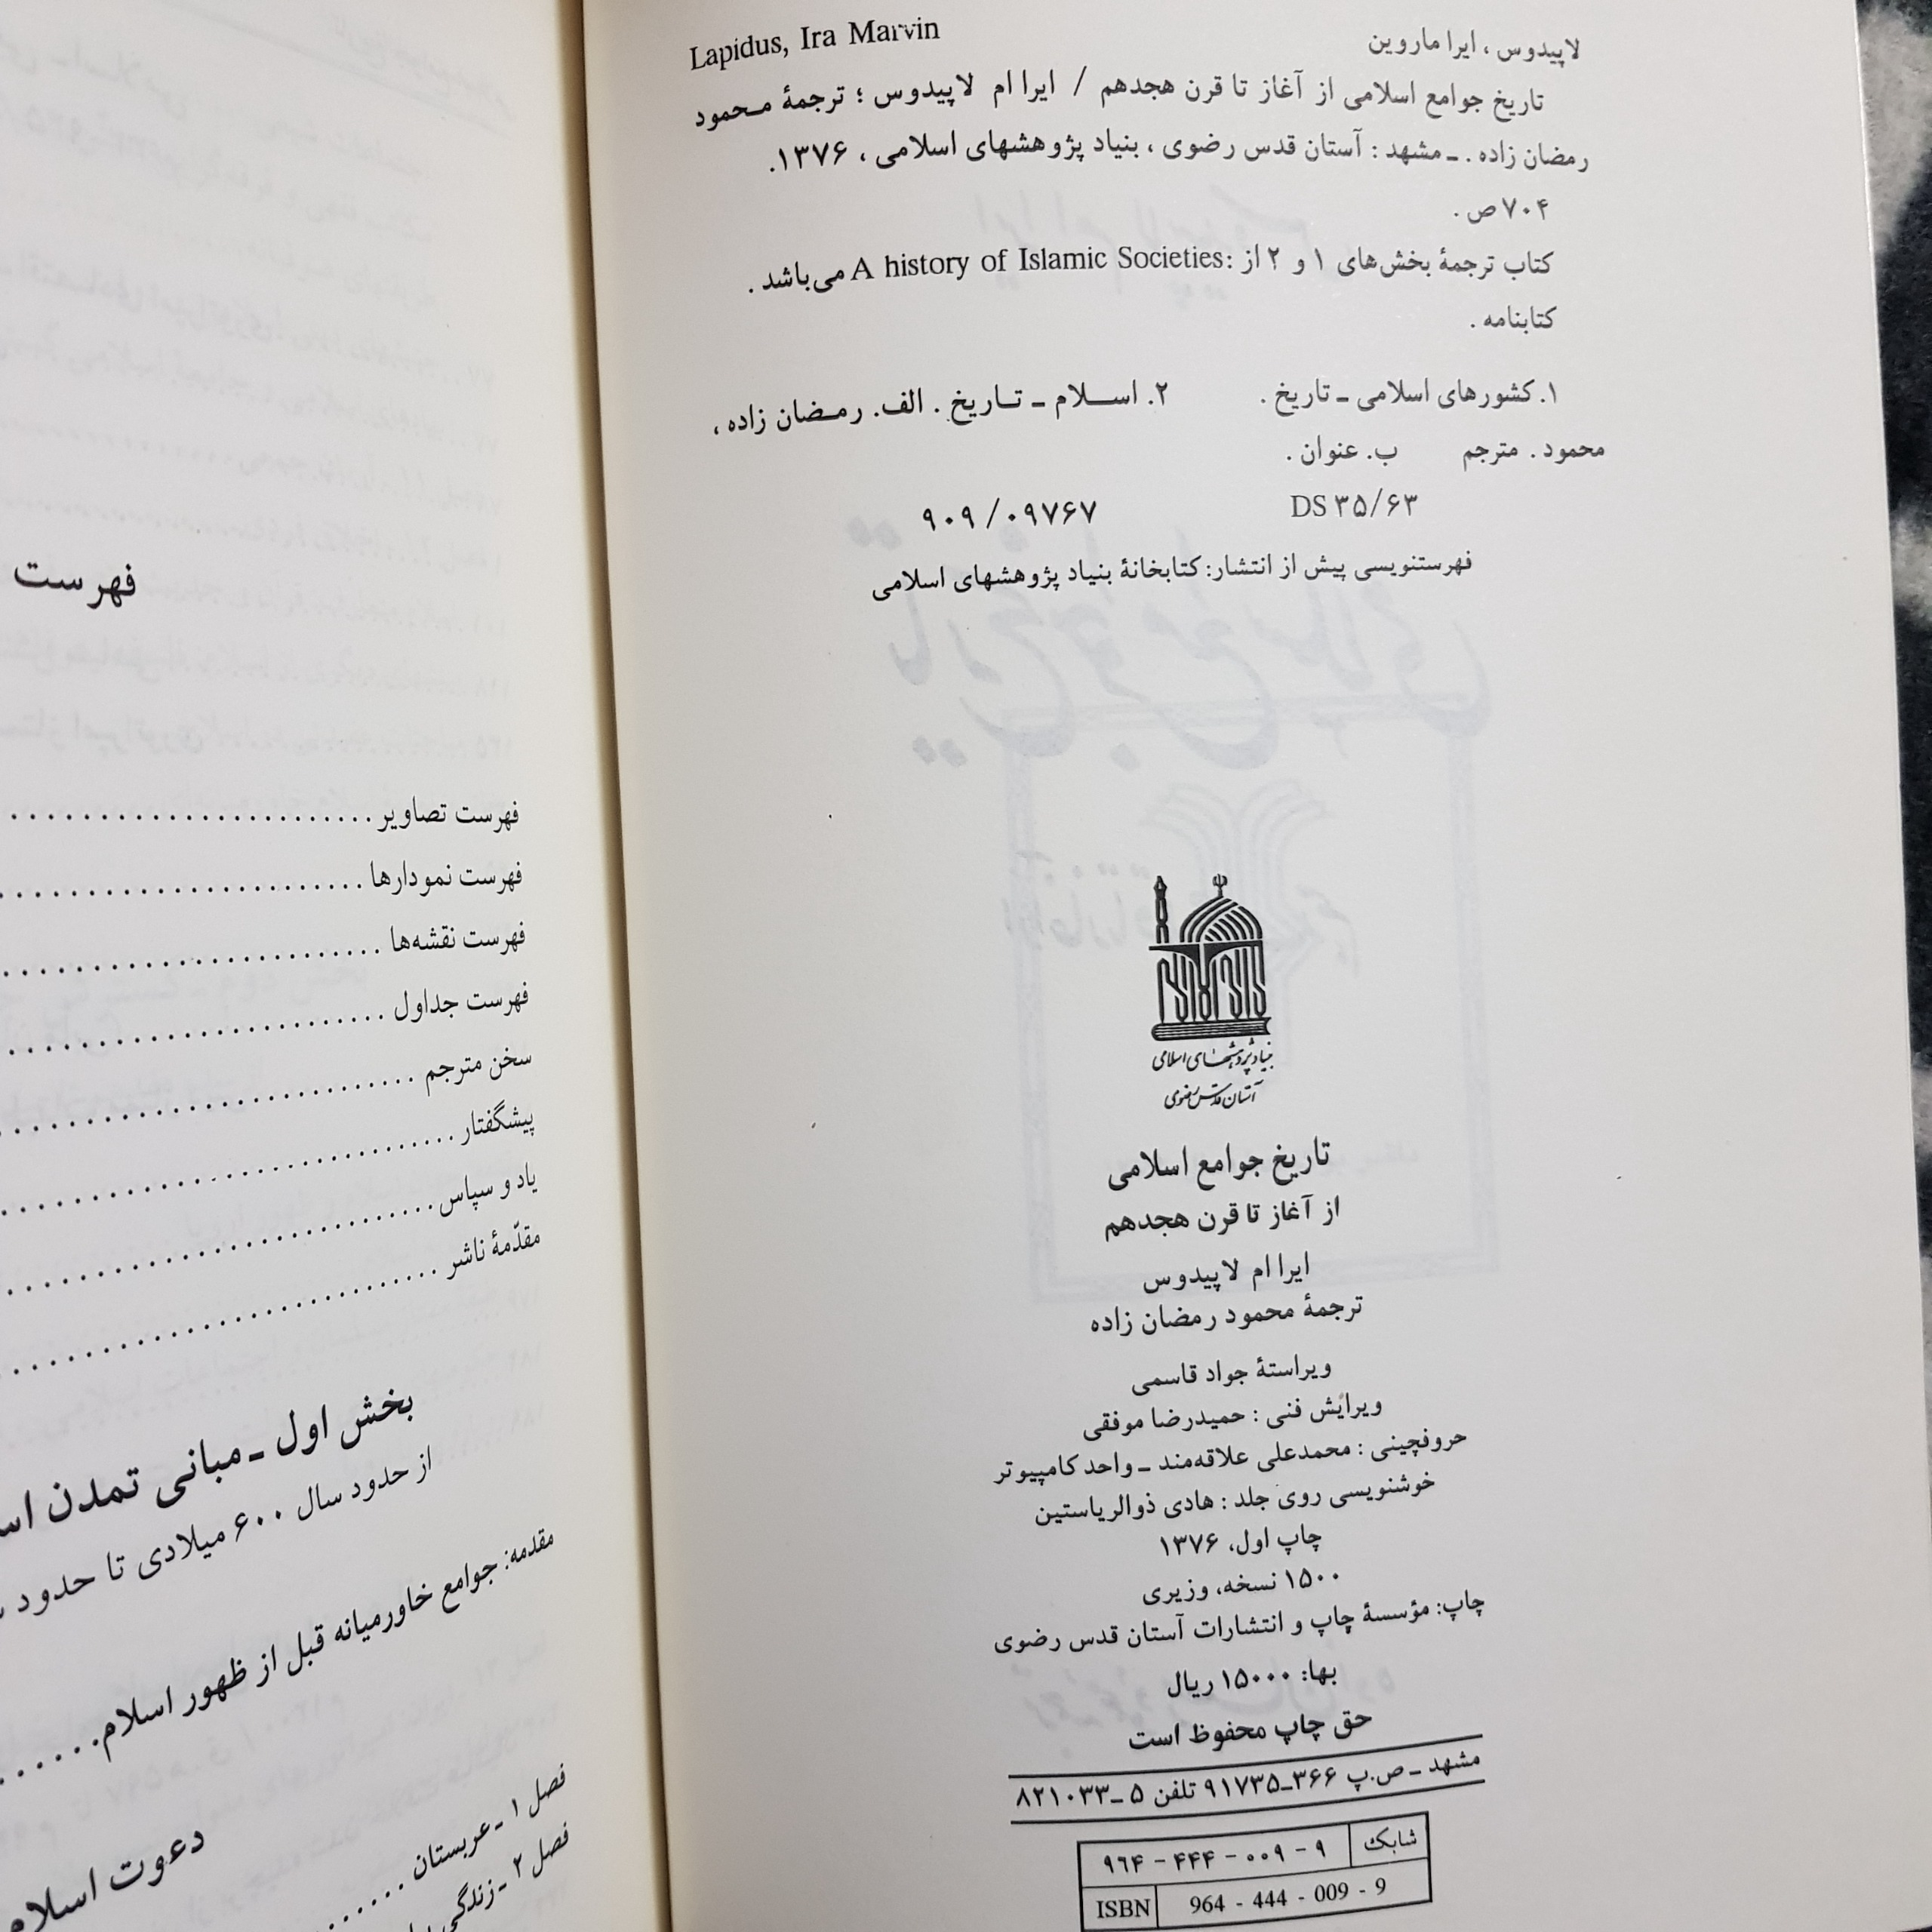 Lapidus, Ira Marvin
لاپیدوس ، ایرا ماروین
تاریخ جوامع اسلامی از آغاز تا قرن هجدهم / ایرا ام لاپیدوس ؛ ترجمهٔ محمود
رمضان زاده . ـ مشهد : آستان قدس رضوی ، بنیاد پژوهشهای اسلامی ، ۱۳۷۶.
۷۰۴ ص .
کتاب ترجمهٔ بخش‌های ۱ و ۲ از :A history of Islamic Societies می‌باشد .
کتابنامه .
۱. کشورهای اسلامی ـ تاریخ . ۲. اسلام ـ تاریخ . الف. رمضان زاده ،
محمود . مترجم ب. عنوان .
DS ۳۵/۶۳ ۹۰۹/۰۹۷۶۷
فهرستنویسی پیش از انتشار: کتابخانهٔ بنیاد پژوهشهای اسلامی
بنیاد پژوهشهای اسلامی
آستان قدس رضوی
تاریخ جوامع اسلامی
از آغاز تا قرن هجدهم
ایرا ام لاپیدوس
ترجمهٔ محمود رمضان زاده
ویراستهٔ جواد قاسمی
ویرایش فنی : حمیدرضا موفقی
حروفچینی : محمدعلی علاقه‌مند ـ واحد کامپیوتر
خوشنویسی روی جلد : هادی ذوالریاستین
چاپ اول، ۱۳۷۶
۱۵۰۰ نسخه، وزیری
چاپ: مؤسسهٔ چاپ و انتشارات آستان قدس رضوی
بها: ۱۵۰۰۰ ریال
حق چاپ محفوظ است
مشهد ـ ص.پ ۳۶۶ـ۹۱۷۳۵ تلفن ۵ ـ۸۲۱۰۳۳
شابک ۹ - ۰۰۹ - ۴۴۴ - ۹۶۴
ISBN 964 - 444 - 009 - 9
فهرست
فهرست تصاویر . . . . . . . . . . . . . . . . . . . . . . .
فهرست نمودارها . . . . . . . . . . . . . . . . . . . . . . .
فهرست نقشه‌ها . . . . . . . . . . . . . . . . . . . . . . .
فهرست جداول . . . . . . . . . . . . . . . . . . . . . . .
سخن مترجم . . . . . . . . . . . . . . . . . . . . . . .
پیشگفتار . . . . . . . . . . . . . . . . . . . . . . .
یاد و سپاس . . . . . . . . . . . . . . . . . . . . . . .
مقدّمهٔ ناشر . . . . . . . . . . . . . . . . . . . . . . .
بخش اول ـ مبانی تمدن
از حدود سال ۶۰۰ میلادی تا حدود
مقدمه: جوامع خاورمیانه قبل از ظهور اسلام . . . . . .
دعوت اسلام
فصل ۱ ـ عربستان . . . . . . . .
فصل ۲ ـ زندگی